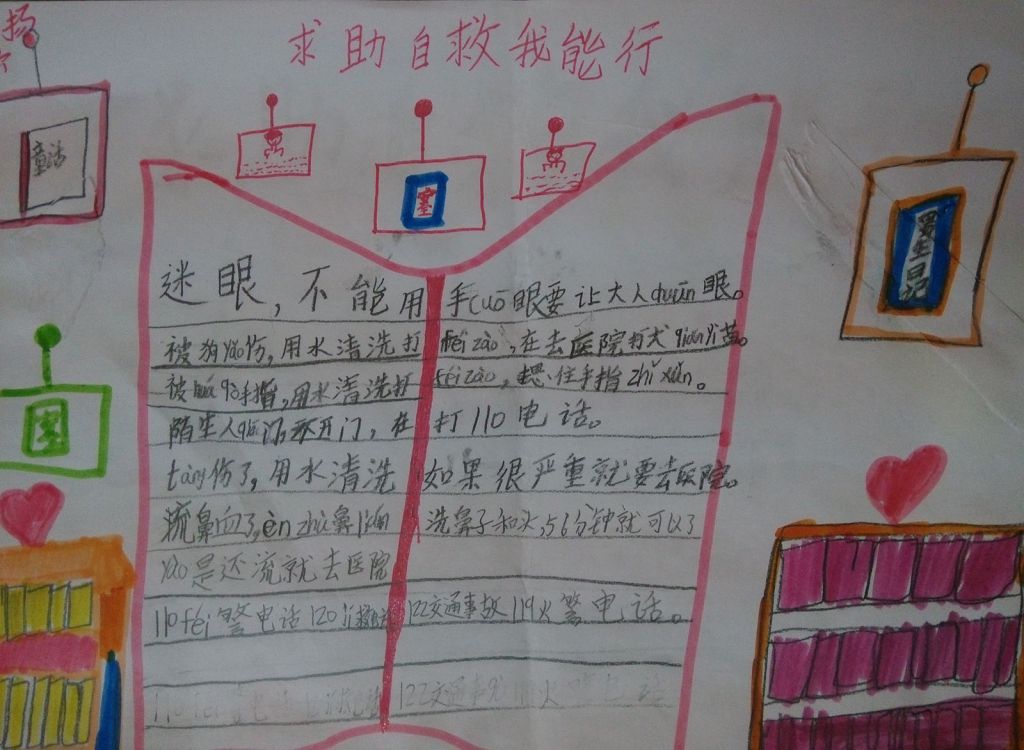 求助自救我能行
扬
童话
男生日记
迷眼，不能用手cuō眼要让大人chuī眼。
被狗yǎo伤，用水清洗打féi zào，在去医院打犬
被 手指，用水清洗打féi zào， 住手指zhǐ xuè。
陌生人 门，不开门，在打110电话。
tàng伤了，用水清洗如果很严重就要去医院。
流鼻血了，èn zhù鼻 洗鼻子和 56分钟就可以了
yào是还流就去医院
110 警电话120 122交通事故119火警电话。
110 122交通事 火 电话